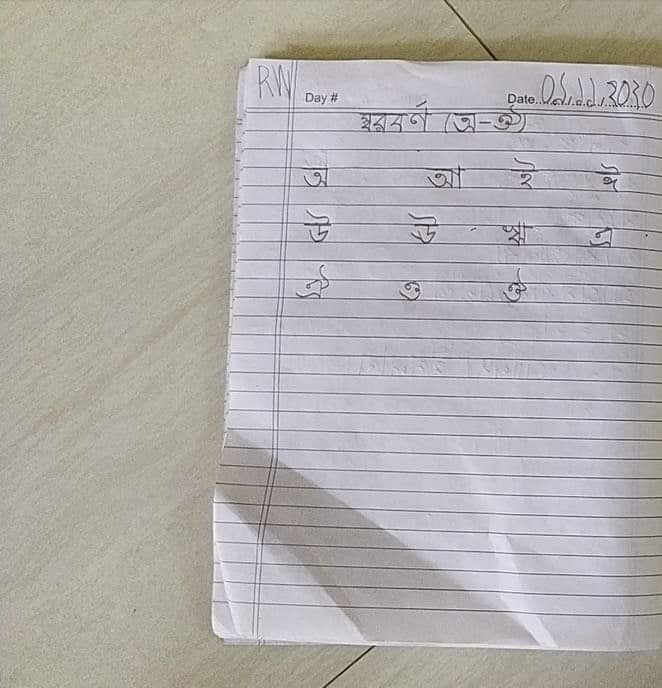 RW Day # Date 05.11.2020
স্বরবর্ণ (অ-ঔ)
অ আ ই ঈ
উ ঊ ঋ এ
ঐ ও ঔ